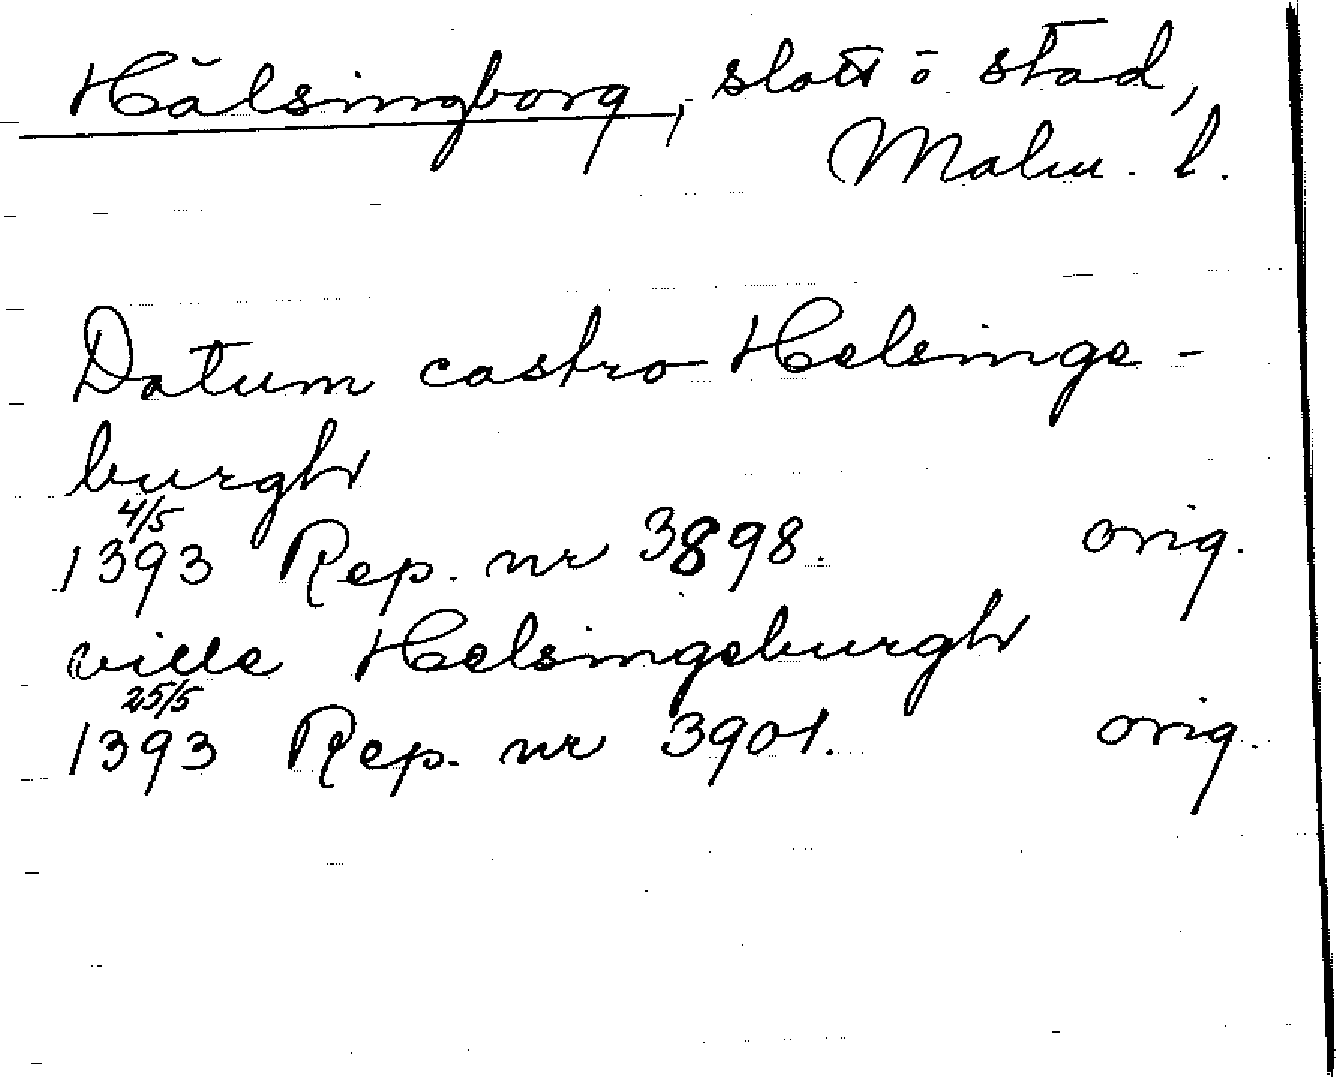 Hälsingborg, slott o stad,
Malm. l.
Datum castro Helsinge-
burgh
4/5
1393 Rep. nr 3898. orig.
ville Helsingeburgh
25/5
1393 Rep. nr 3901. orig.